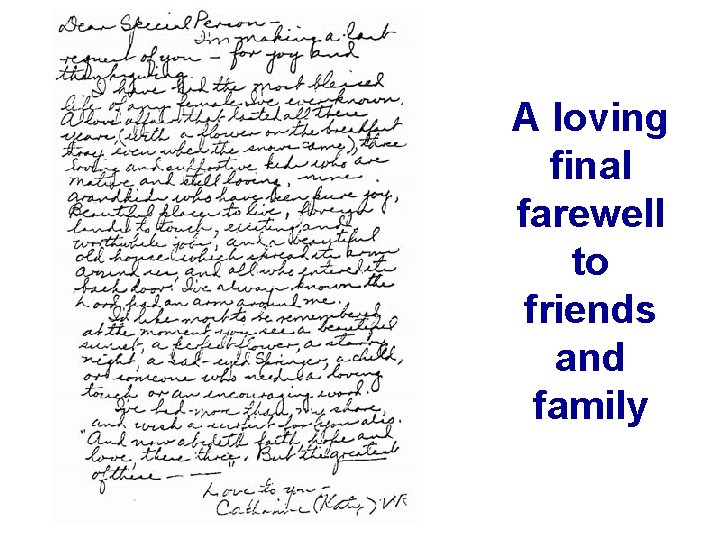 Dear Special Person —
I'm making a last
request of you — for joy and
thanksgiving.
I have had the most blessed
life of any female I've ever known.
A love affair that lasted all these
years, (with a flower on the breakfast
tray even when the snows came), three
loving and supportive kids who are
mature and still loving, nine
grandkids who have been pure joy,
Beautiful places to live, foreign
lands to touch, exciting and
worthwhile jobs, and a beautiful
old house which spread its arms
around us, and all who entered its
back door, I've always known the
Lord had an arm around me.
I'd like most to be remembered
at the moment you see a beautiful
sunset, a perfect flower, a starry
night, a sad-eyed Springer, a child,
or someone who needs a loving
touch or an encouraging word.
I've had more than my share
and wish a for you also.
"And now abideth faith, hope and
love, these three. But the greatest
of these — — —"
Love to you —
Catharine (Katy) VR
A loving
final
farewell
to
friends
and
family